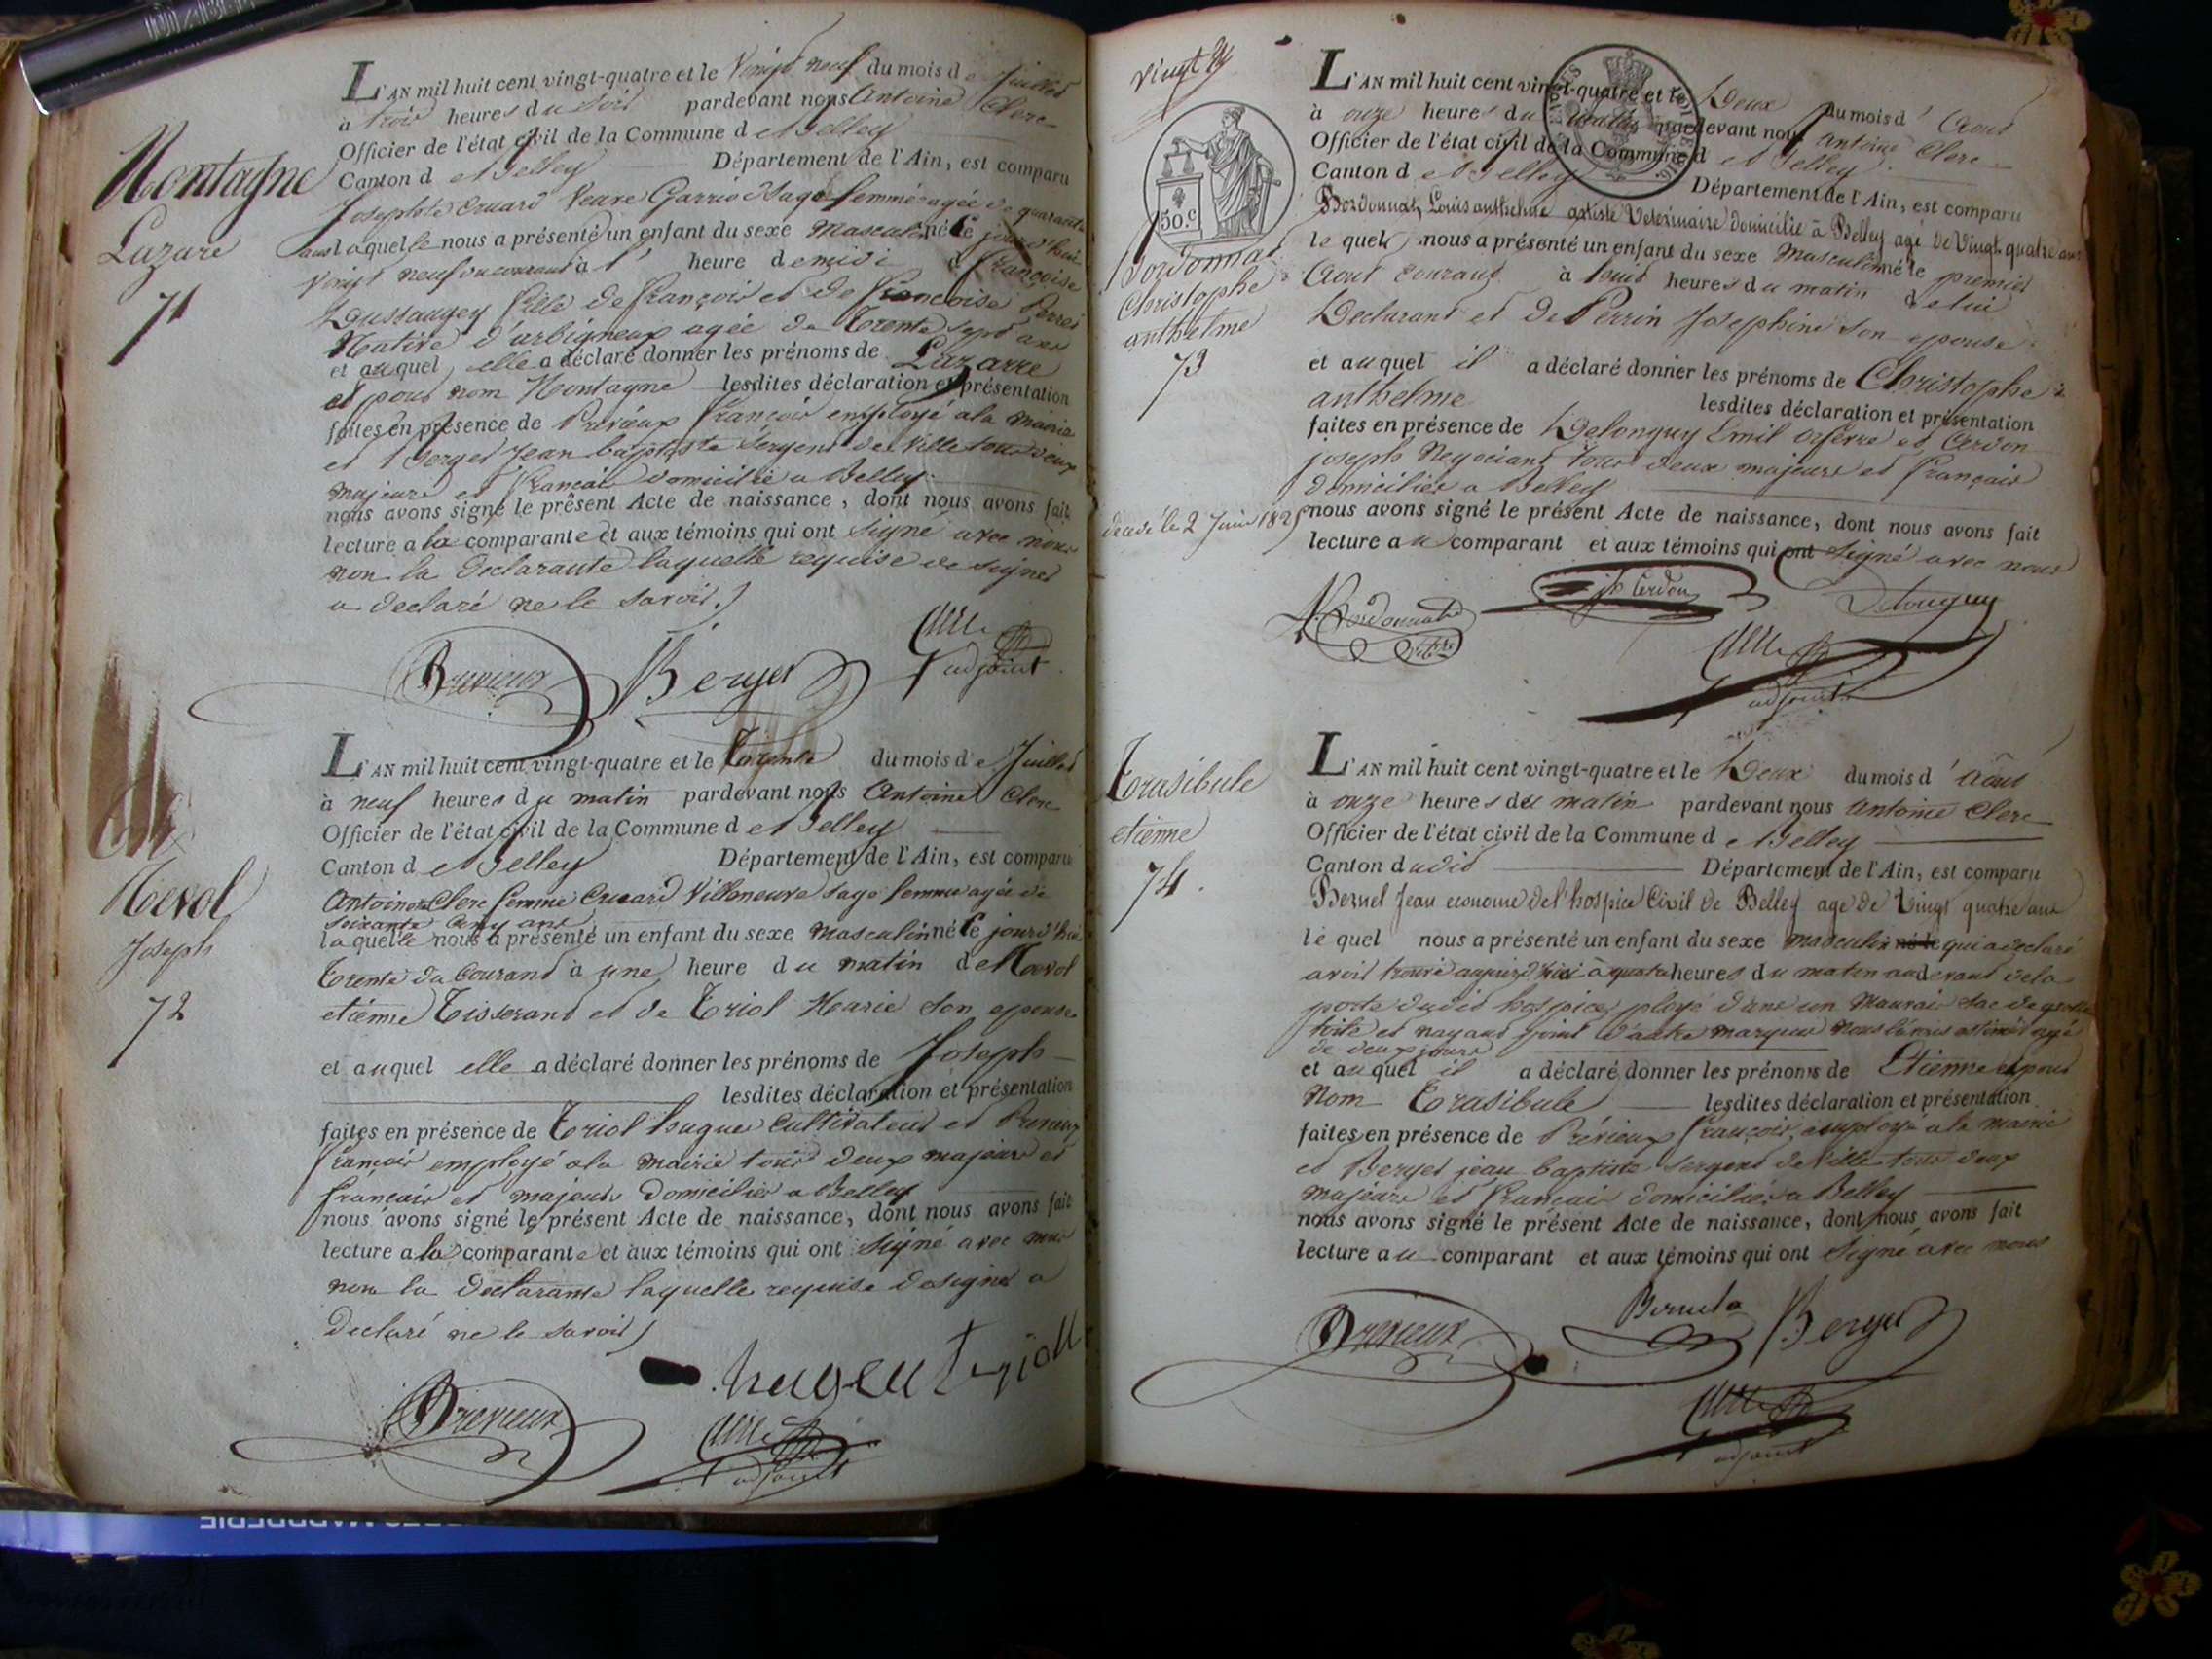 Montagne
Lazare
71
L'AN mil huit cent vingt-quatre et le Vingt neuf du mois de Juillet
à trois heures du Soir pardevant nous Antoine Clerc
Officier de l'état civil de la Commune de Belley
Canton de Belley Département de l'Ain, est comparu
Josephte Cruard Veuve Sage femme agée de quarante
ans laquelle nous a présenté un enfant du sexe Masculin né le jourd'hui
Vingt neuf du courant à l' heure de midi de françoise
Dussaugey fille de françois et de françoise Perret
Native d'arbigneux agée de Trente sept ans
et auquel elle a déclaré donner les prénoms de Lazarre
et pour nom Montagne lesdites déclaration et présentation
faites en présence de Prévieux françois employé a la mairie
et Berger Jean baptiste Sergent de Ville tous deux
majeurs et francais domicilié a Belley
nous avons signé le présent Acte de naissance, dont nous avons fait
lecture a la comparante et aux témoins qui ont Signé avec nous
non la declarante laquelle requise de signer
a declaré ne le savoir.
Previeux Berger Clerc
adjoint
Mevol
Joseph
72
L'AN mil huit cent vingt-quatre et le Trente du mois de Juillet
à neuf heures du matin pardevant nous Antoine Clerc
Officier de l'état civil de la Commune de Belley
Canton de Belley Département de l'Ain, est comparu
Clerc femme Cruard Villeneuve Sage femme agée de
soixante cinq ans
laquelle nous a présenté un enfant du sexe masculin né le jourd'hui
Trente du Courant à une heure du matin de Mevol
etienne Tisserand et de Triol Marie Son epouse
et auquel elle a déclaré donner les prénoms de Joseph
lesdites déclaration et présentation
faites en présence de Triol hugues Cultivateur et Previeux
françois employé a la mairie tous deux majeurs et
français et majeurs Domiciliés a Belley
nous avons signé le présent Acte de naissance, dont nous avons fait
lecture a la comparante et aux témoins qui ont Signé avec nous
non la Declarante laquelle requise de signer a
Declaré ne le savoir
hugeu trioll
Previeux Clerc
adjoint
Vingt
50.c
Bordonnat
Christophe
anthelme
73
decedé le 2 Juin 1825
L'AN mil huit cent vingt-quatre et le Deux du mois d'Aout
à onze heures du matin pardevant nous Antoine Clerc
Officier de l'état civil de la Commune de Belley
Canton de Belley Département de l'Ain, est comparu
Bordonnat, Louis anthelme artiste Veterinaire domicilié à Belley agé de Vingt quatre ans
lequel nous a présenté un enfant du sexe Masculin né le premier
Aout courant à heures du matin de lui
Declarant et de Perrin Josephine son epouse
et auquel il a déclaré donner les prénoms de Christophe
anthelme lesdites déclaration et présentation
faites en présence de Delonguy Emil orfevre et Cerdon
joseph Negociant tous deux majeurs et français
domiciliés a Belley
nous avons signé le présent Acte de naissance, dont nous avons fait
lecture au comparant et aux témoins qui ont signé avec nous
Bordonnat Jh Cerdon Delonguy
Clerc
adjoint
Trasibule
etienne
74.
L'AN mil huit cent vingt-quatre et le Deux du mois d'Aôut
à onze heures du matin pardevant nous Antoine Clerc
Officier de l'état civil de la Commune de Belley
Canton dudit Département de l'Ain, est comparu
Bernel Jean econome de l'hospice Civil de Belley age de Vingt quatre ans
lequel nous a présenté un enfant du sexe masculin né le qui a declaré
avoir trouvé aujourd'hui à quatre heures du matin au devant de la
porte dudit hospice, ployé dans un Mauvais sac de grosse
toile et nayant point d'autre marque nous l'avons estimé agé
de deux jours
et auquel il a déclaré donner les prénoms de Etienne et pour
Nom Trasibule lesdites déclaration et présentation
faites en présence de Prévieux françois, employé a la mairie
et Berger jean baptiste Sergent de Ville tous deux
majeurs et français domiciliés a Belley
nous avons signé le présent Acte de naissance, dont nous avons fait
lecture au comparant et aux témoins qui ont Signé avec nous
Previeux Berger
Clerc
adjoint